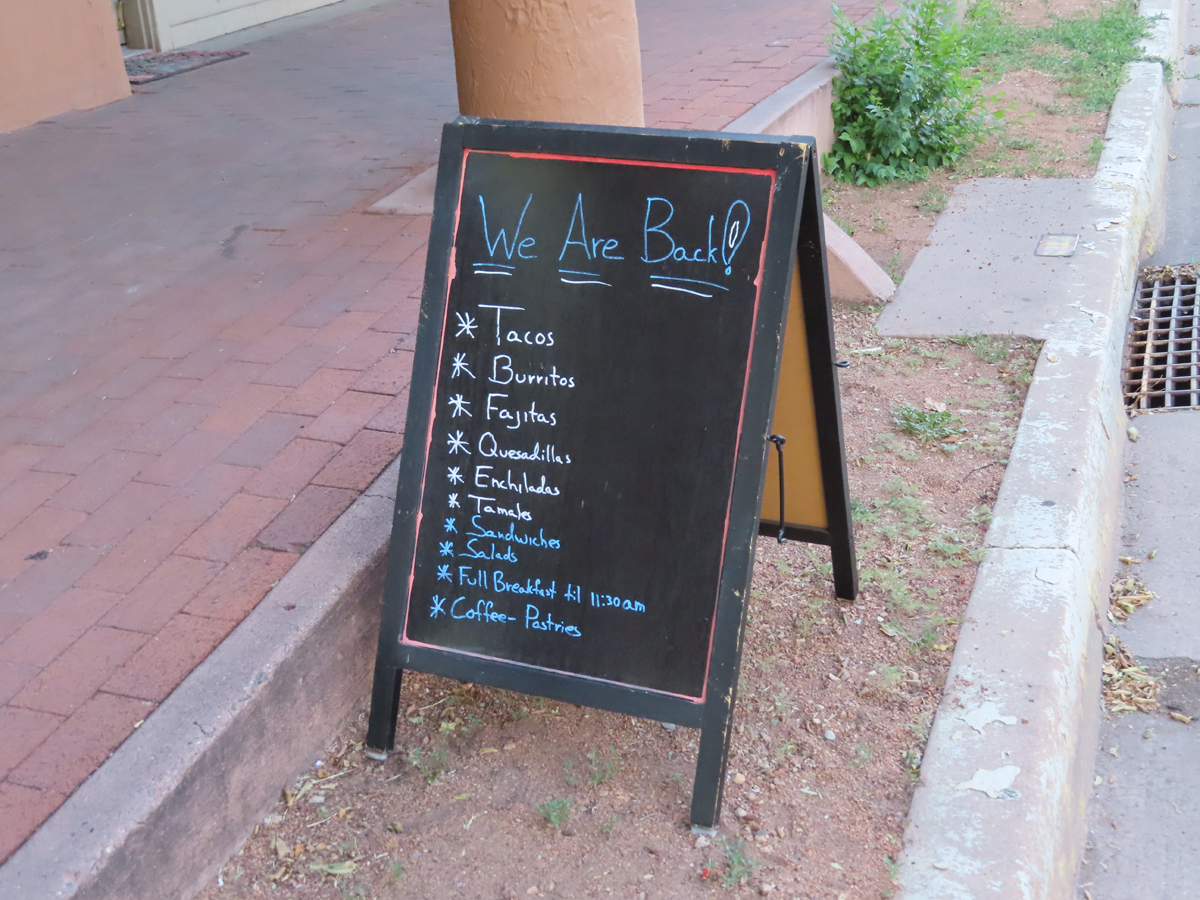 We Are Back!
* Tacos
* Burritos
* Fajitas
* Quesadillas
* Enchiladas
* Tamales
* Sandwiches
* Salads
* Full Breakfast til 11:30am
* Coffee- Pastries